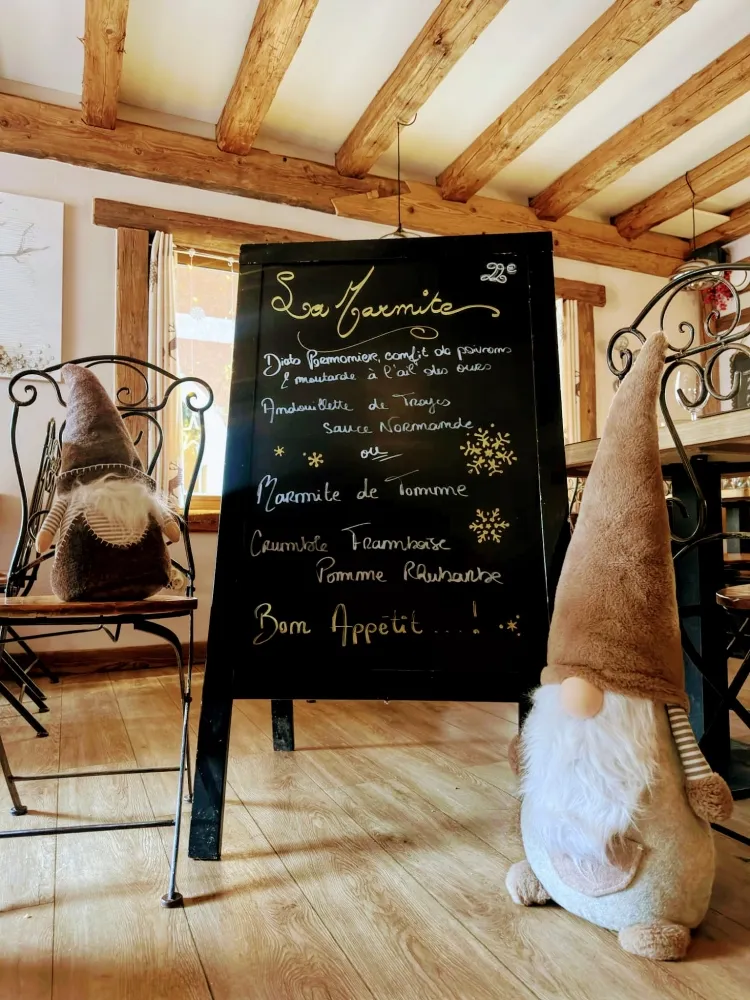 22€
La Marmite
Diots Parmomiere, confit de poivrons
& moutarde à l'ail des ours
Andouillette de Troyes
sauce Normande
ou
Marmite de Tomme
Crumble Framboise
Pomme Rhubarbe
Bon Appétit ....!